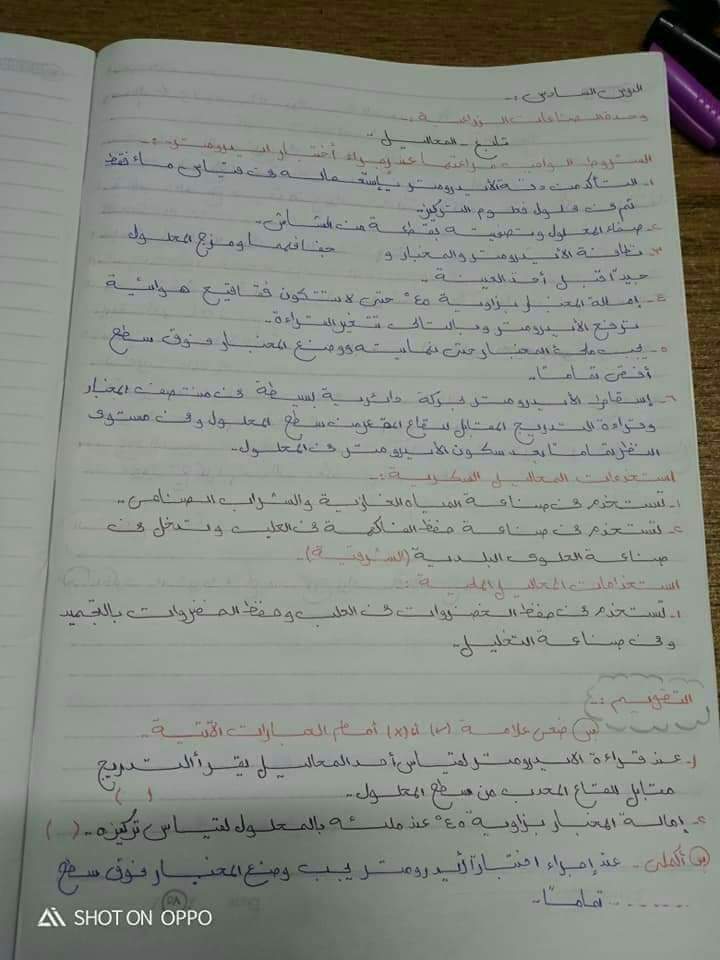 الدرس السادس :-
وحدة الصناعات الزراعية :-
تابع - المحاليل -
الشروط الواجب مراعتها عند إجراء أختبار ايدرومتر :-
١- التأكد من دقة الأيدرومتر بإستعماله فى قياس ماء فقط
ثم فى محلول معلوم التركيز.
٢- صفاء المحلول وتصفيته بقطعة من الشاش.
٣- نظافة الأيدرومتر والمخبار و جفافهما ومزج المحلول
جيداً قبل أخذ العينة.
٤- إمالة المخبار بزاوية ٤٥° حتى لا تتكون فقاقيع هوائية
ترفع الأيدرومتر وبالتالى تتغير القراءة.
٥- يجب ملئ المخبار حتى نهايته ووضع المخبار فوق سطح
أفقى تماماً.
٦- إسقاط الأيدرومتر بحركة دائرية بسيطة فى منتصف المخبار
وقراءة التدريج المقابل للقاع المقعر من سطح المحلول وفى مستوى
النظر تماماً بعد سكون الأيدرومتر فى المحلول.
استخدامات المحاليل السكرية :-
١- تستخدم فى صناعة المياه الغازية والشراب الصناعى.
٢- تستخدم فى صناعة حفظ الفاكهة فى العلب وتدخل فى
صناعة الحلوى البلدية (الشرقية).
استخدامات المحاليل الملحية :-
١- تستخدم فى حفظ الخضروات فى العلب وحفظ الخضروات بالتجميد
وفى صناعة التخليل.
التقويم :-
س ضعى علامة (√) أو (x) أمام العبارات الآتية :-
١- عند قراءة الايدرومتر لقياس أحد المحاليل يقرأ التدريج
مقابل القاع المحدب من سطح المحلول. ( )
٢- إمالة المخبار بزاوية ٤٥° عند ملئه بالمحلول لقياس تركيزه. ( )
س أكملى - عند إجراء اختبار الأيدرومتر يجب وضع المخبار فوق سطح
........ تماماً.
SHOT ON OPPO